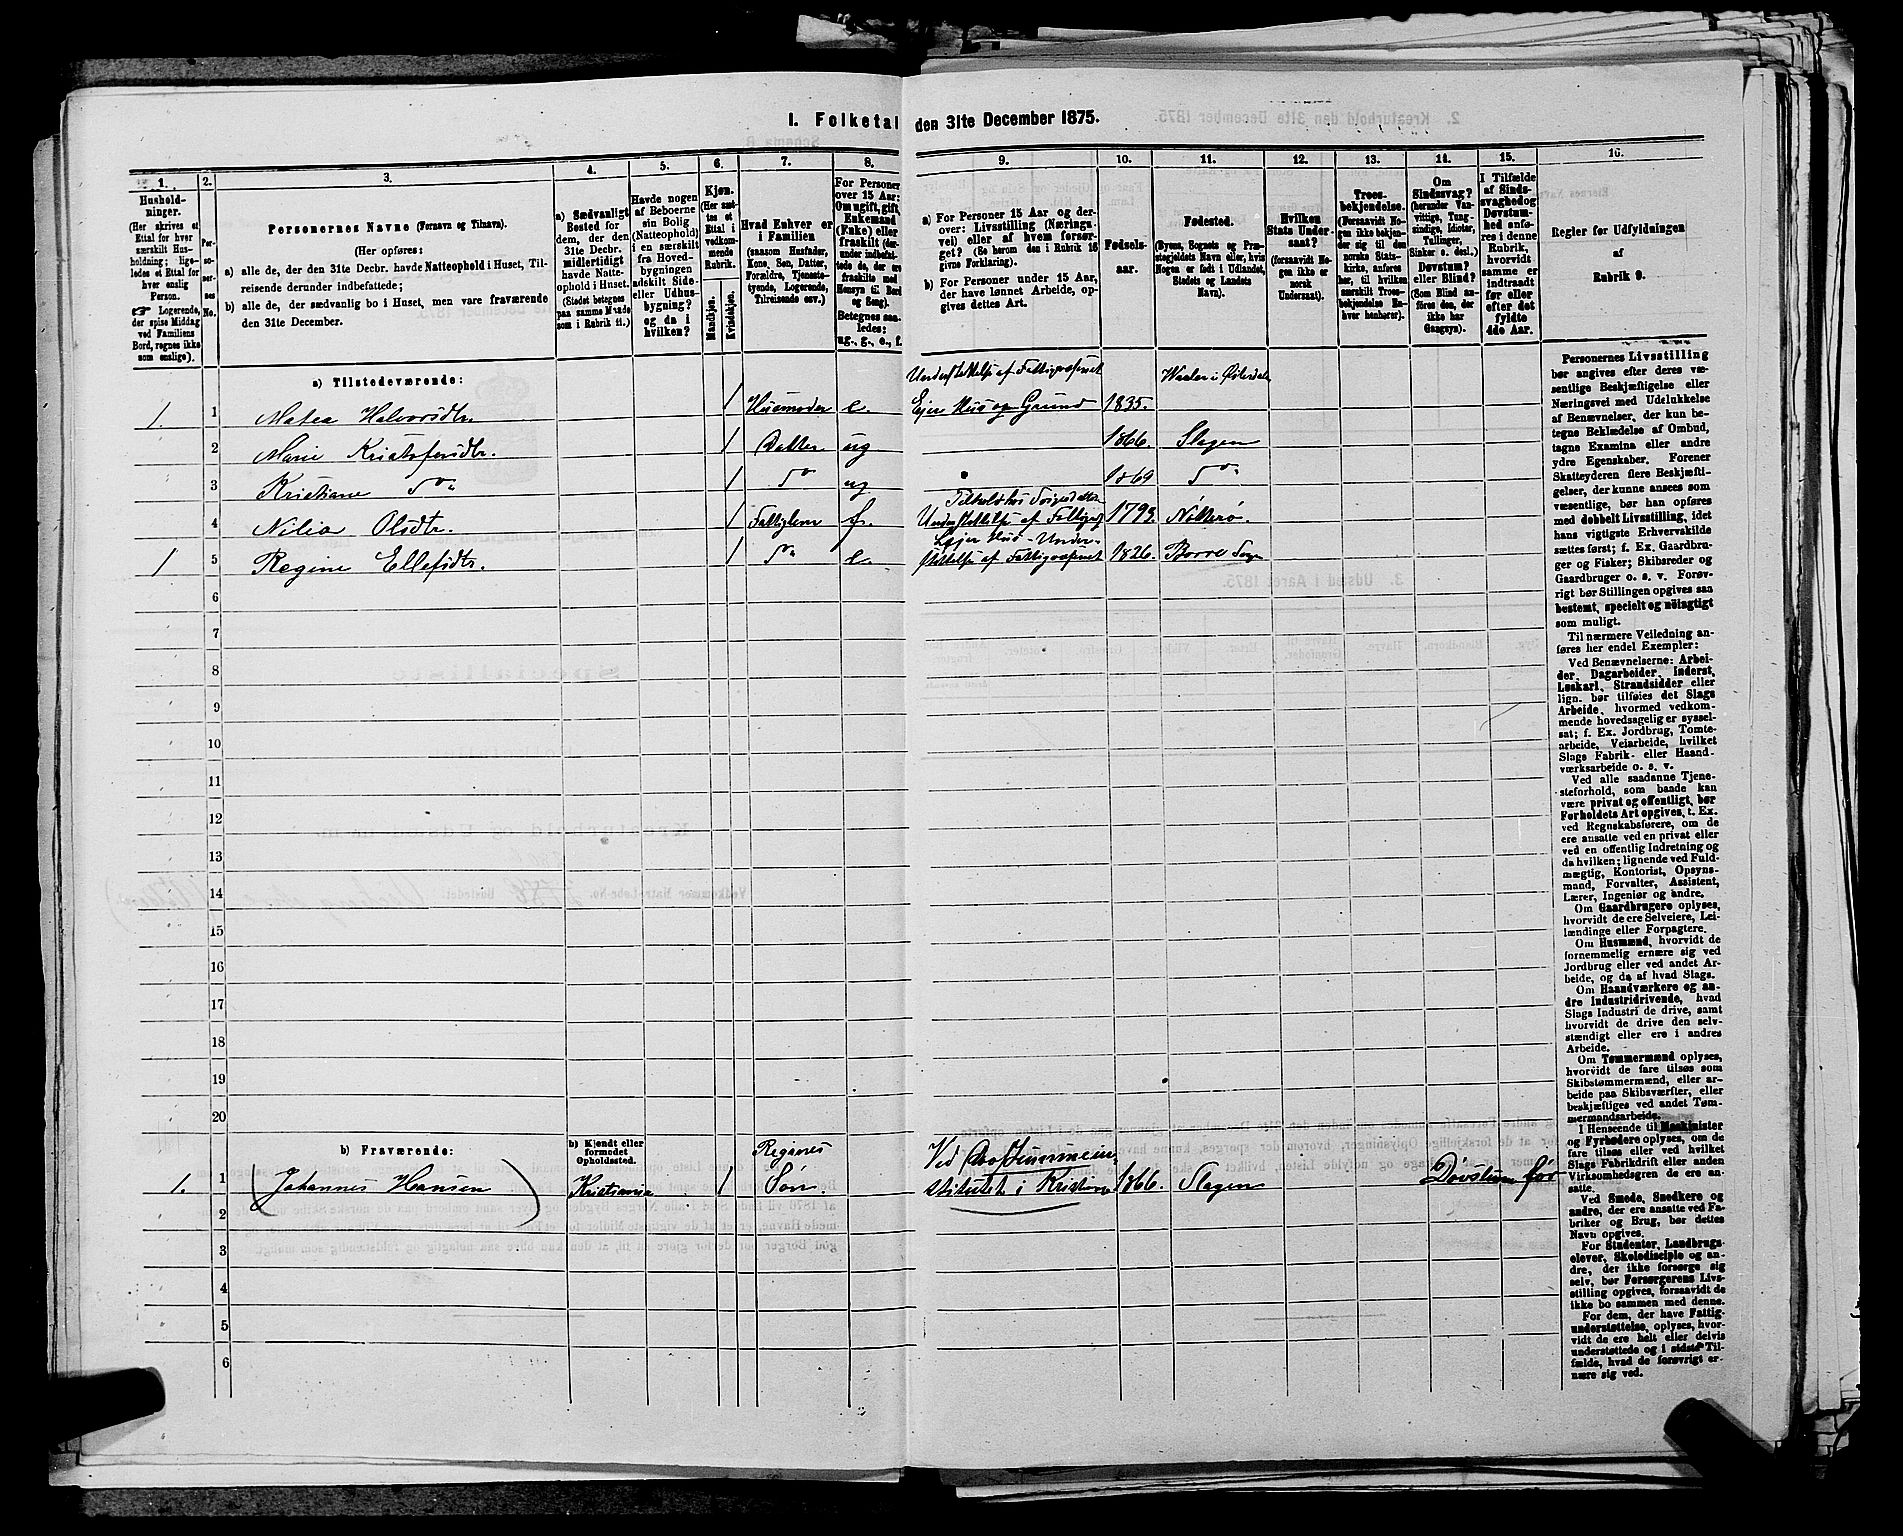 I. Folketal den 31te December 1875.
1.
2.
3.
4.
5.
6.
7.
8.
9.
10.
11.
12.
13.
14.
15.
16.
Husholdninger.
(Her skrives et
Ettal for hver
særskilt Husholdning;
ligeledes et Ettal for
hver enslig
Person.
☞ Logerende,
der spise Middag
ved Familiens
Bord, regnes ikke
som enslige).
Personernes No.
Personernes Navne (Fornavn og Tilnavn).
(Her opføres:
a) alle de, der den 31te Decbr. havde Natteophold i Huset, Tilreisende
derunder indbefattede;
b) alle de, der sædvanlig bo i Huset, men vare fraværende
den 31te December.
a) Sædvanligt
Bosted for
dem, der den
31te Decbr.
midlertidigt
havde Natteophold
i Huset.
(Stedet betegnes
paa samme Maade
som i Rubrik 11.)
Havde nogen
af Beboerne
sin Bolig
(Natteophold)
i en særskilt
fra Hovedbygningen
adskilt Side-
eller Udhusbygning?
og da i
hvilken?
Kjøn.
(Her sættes
et
Ettal i
vedkommende
Rubrik.
Mandkjøn.
Kvindekjøn.
Hvad Enhver er
i Familien
(saasom Husfader,
Kone, Søn, Datter,
Forældre, Tjenestetyende,
Logerende,
Tilreisende osv.)
For Personer
over 15 Aar:
Om ugift, gift,
Enkemand
(Enke) eller
fraskilt (derunder
indbefattede
de, der ere
fraskilte med
Hensyn til Bord
og Seng).
Betegnes saaledes:
ug., g., e., f.
a) For Personer 15 Aar og derover:
Livsstilling (Næringsvei)
eller af hvem forsørget?
(Se herom den i Rubrik 16
givne Forklaring).
b) For Personer under 15 Aar,
der have lønnet Arbeide, opgives
dettes Art.
Fødselsaar.
Fødested.
(Byens, Sognets og Præstegjeldets
Navn eller, hvis
Nogen er født i Udlandet,
Stedets og Landets
Navn).
Hvilken
Stats Undersaat?
(forsaavidt Nogen
ikke er
norsk
Undersaat).
Troesbekjendelse.
(Forsaavidt Nogen
ikke bekjender
sig til den
norske Statskirke,
anføres
her, til hvilken
særskilt Troesbekjendelse
Enhver
henhører).
Om
Sindssvag?
(herunder Vanvittige,
Tungsindige,
Idioter,
Tullinger,
Sinker o. desl.)
Døvstum?
eller Blind?
(Som Blind anføres
den, der
ikke har
Gangsyn).
I Tilfælde
af Sindssvaghed
og
Døvstumhed
anføres
i denne
Rubrik,
hvorvidt
samme er
indtraadt
før eller
efter det
fyldte
4de Aar.
Regler for Udfyldningen
af
Rubrik 9.
a) Tilstedeværende:
Understøttelse af Fattigvæsenet
Waaler i Østerdalen
1. 1 Matea Halvorsdtr. 1 Husmoder e. Ejer Hus og Grund 1835.
2 Marie Kristofersdtr. 1 Datter ug 1866. Slagen
3 Kristiane Do 1 Do ug 1869 Do
4 Nilia Olsdtr. 1 Fattiglem f. Understøttelse af Fattigv. 1793. Nøtterø.
1 5 Regine Ellefsdtr. 1 Do e. Understøttelse af Fattigvæsenet 1826. Borre Sogn
6
7
8
9
10
11
12
13
14
15
16
17
18
19
20
b) Fraværende:
b) Kjendt eller
formodet
Opholdssted.
Regines
Ved Døvstummein-
1. 1 (Johannes Hansen) Kristiania 1 Søn. stitutet i Kristiania 1866. Slagen Døvstum før
2
3
4
5
6
Personernes Livsstilling
bør angives efter deres væsentlige
Beskjæftigelse eller
Næringsvei med Udelukkelse
af Benævnelser, der kun betegne
Beklædelse af Ombud,
tagne Examina eller andre
ydre Egenskaber. Forener
Skatteyderen flere Beskjæftigelser,
der kunne ansees som
væsentlige, bør han opføres
med dobbelt Livsstilling, idet
hans vigtigste Erhvervskilde
sættes først; f. Ex. Gaardbruger
og Fisker; Skibsreder og
Gaardbruger o. s. v. Forøvrigt
bør Stillingen opgives saa
bestemt, specielt og nöiagtigt
som muligt.
Til nærmere Veiledning anføres
her endel Exempler:
Ved Benævnelserne: Arbeider,
Dagarbeider, Inderst,
Løskarl, Strandsidder eller
lign. bør tilføies det Slags
Arbeide, hvormed vedkommende
hovedsagelig er sysselsat;
f. Ex. Jordbrug, Tomtearbeide,
Veiarbeide, hvilket
Slags Fabrik- eller Haandværksarbeide
o. s. v.
Ved alle saadanne Tjenesteforhold,
som baade kan
være privat og offentligt, bør
Forholdets Art opgives, t. Ex.
ved Regnskabsførere, om de
ere ansatte ved en privat eller
ved en offentlig Indretning og
da hvilken; lignende ved Fuldmægtig,
Kontorist, Opsynsmand,
Forvalter, Assistent,
Lærer, Ingeniør og andre.
Om Gaardbrugere oplyses,
hvorvidt de ere Selveiere, Leilændinge
eller Forpagtere.
Om Husmænd, hvorvidt de
fornemmelig ernære sig ved
Jordbrug eller ved andet Arbeide,
og da af hvad Slags.
Om Haandværkere og andre
Industridrivende, hvad
Slags Industri de drive, samt
hvorvidt de drive den selvstændigt
eller ere i andres
Arbeide.
Om Tømmermænd oplyses,
hvorvidt de fare tilsøs som
Skibstømmermænd, eller arbeide
paa Skibsværfter, eller
beskjæftiges ved andet Tømmermandsarbeide.
I Henseende til Maskinister
og Fyrbødere oplyses, om de
fare tilsøs eller ved hvilket
Slags Fabrikdrift eller anden
Virksomhedsgren de ere ansatte.
Ved Smede, Snedkere og
andre, der ere ansatte ved Fabriker
og Brug, bør dettes
Navn opgives.
For Studenter, Landbrugselever,
Skoledisciple og andre,
der ikke forsørge sig
selv, bør Forsørgerens Livsstilling
opgives, forsaavidt de
ikke bo sammen med denne.
For dem, der have Fattigunderstøttelse,
oplyses, hvorvidt
de ere helt eller delvis
understøttede og i sidste Tilfælde,
hvad de forøvrigt ernære
sig ved.